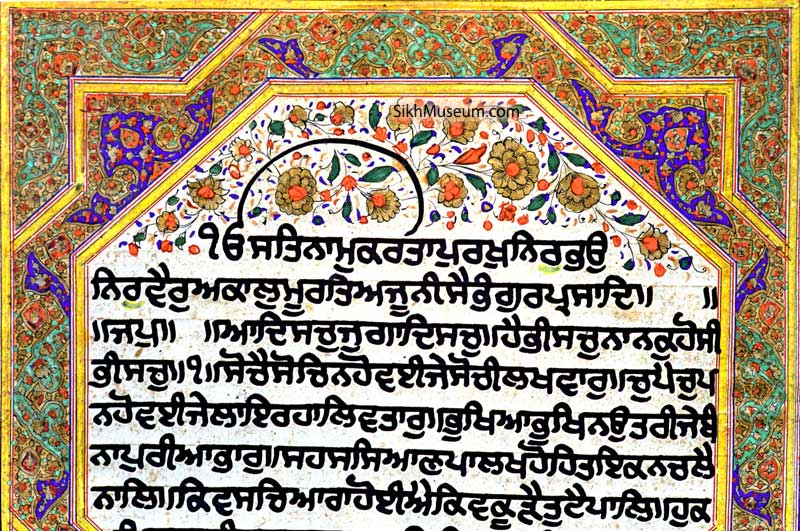 SikhMuseum.com
ੴ ਸਤਿਨਾਮੁਕਰਤਾਪੁਰਖੁਨਿਰਭਉ
ਨਿਰਵੈਰੁਅਕਾਲਮੂਰਤਿਅਜੂਨੀਸੈਭੰਗੁਰਪ੍ਰਸਾਦਿ॥ ॥
॥ਜਪੁ॥ ॥ਆਦਿਸਚੁਜੁਗਾਦਿਸਚੁ॥ਹੈਭੀਸਚੁਨਾਨਕਹੋਸੀ
ਭੀਸਚੁ॥੧॥ਸੋਚੈਸੋਚਿਨਹੋਵਈਜੇਸੋਚੀਲਖਵਾਰ॥ਚੁਪੈਚੁਪ
ਨਹੋਵਈਜੇਲਾਇਰਹਾਲਿਵਤਾਰ॥ਭੁਖਿਆਭੁਖਿਨਉਤਰੀਜੇਬੰ
ਨਾਪੁਰੀਆਭਾਰ॥ਸਹਸਸਿਆਣਪਾਲਖਹੋਹਿਤਇਕਨਚਲੈ
ਨਾਲਿ॥ਕਿਵਸਚਿਆਰਾਹੋਈਐਕਿਵਕੂੜੈਤੁਟੈਪਾਲਿ॥ਹੁਕ